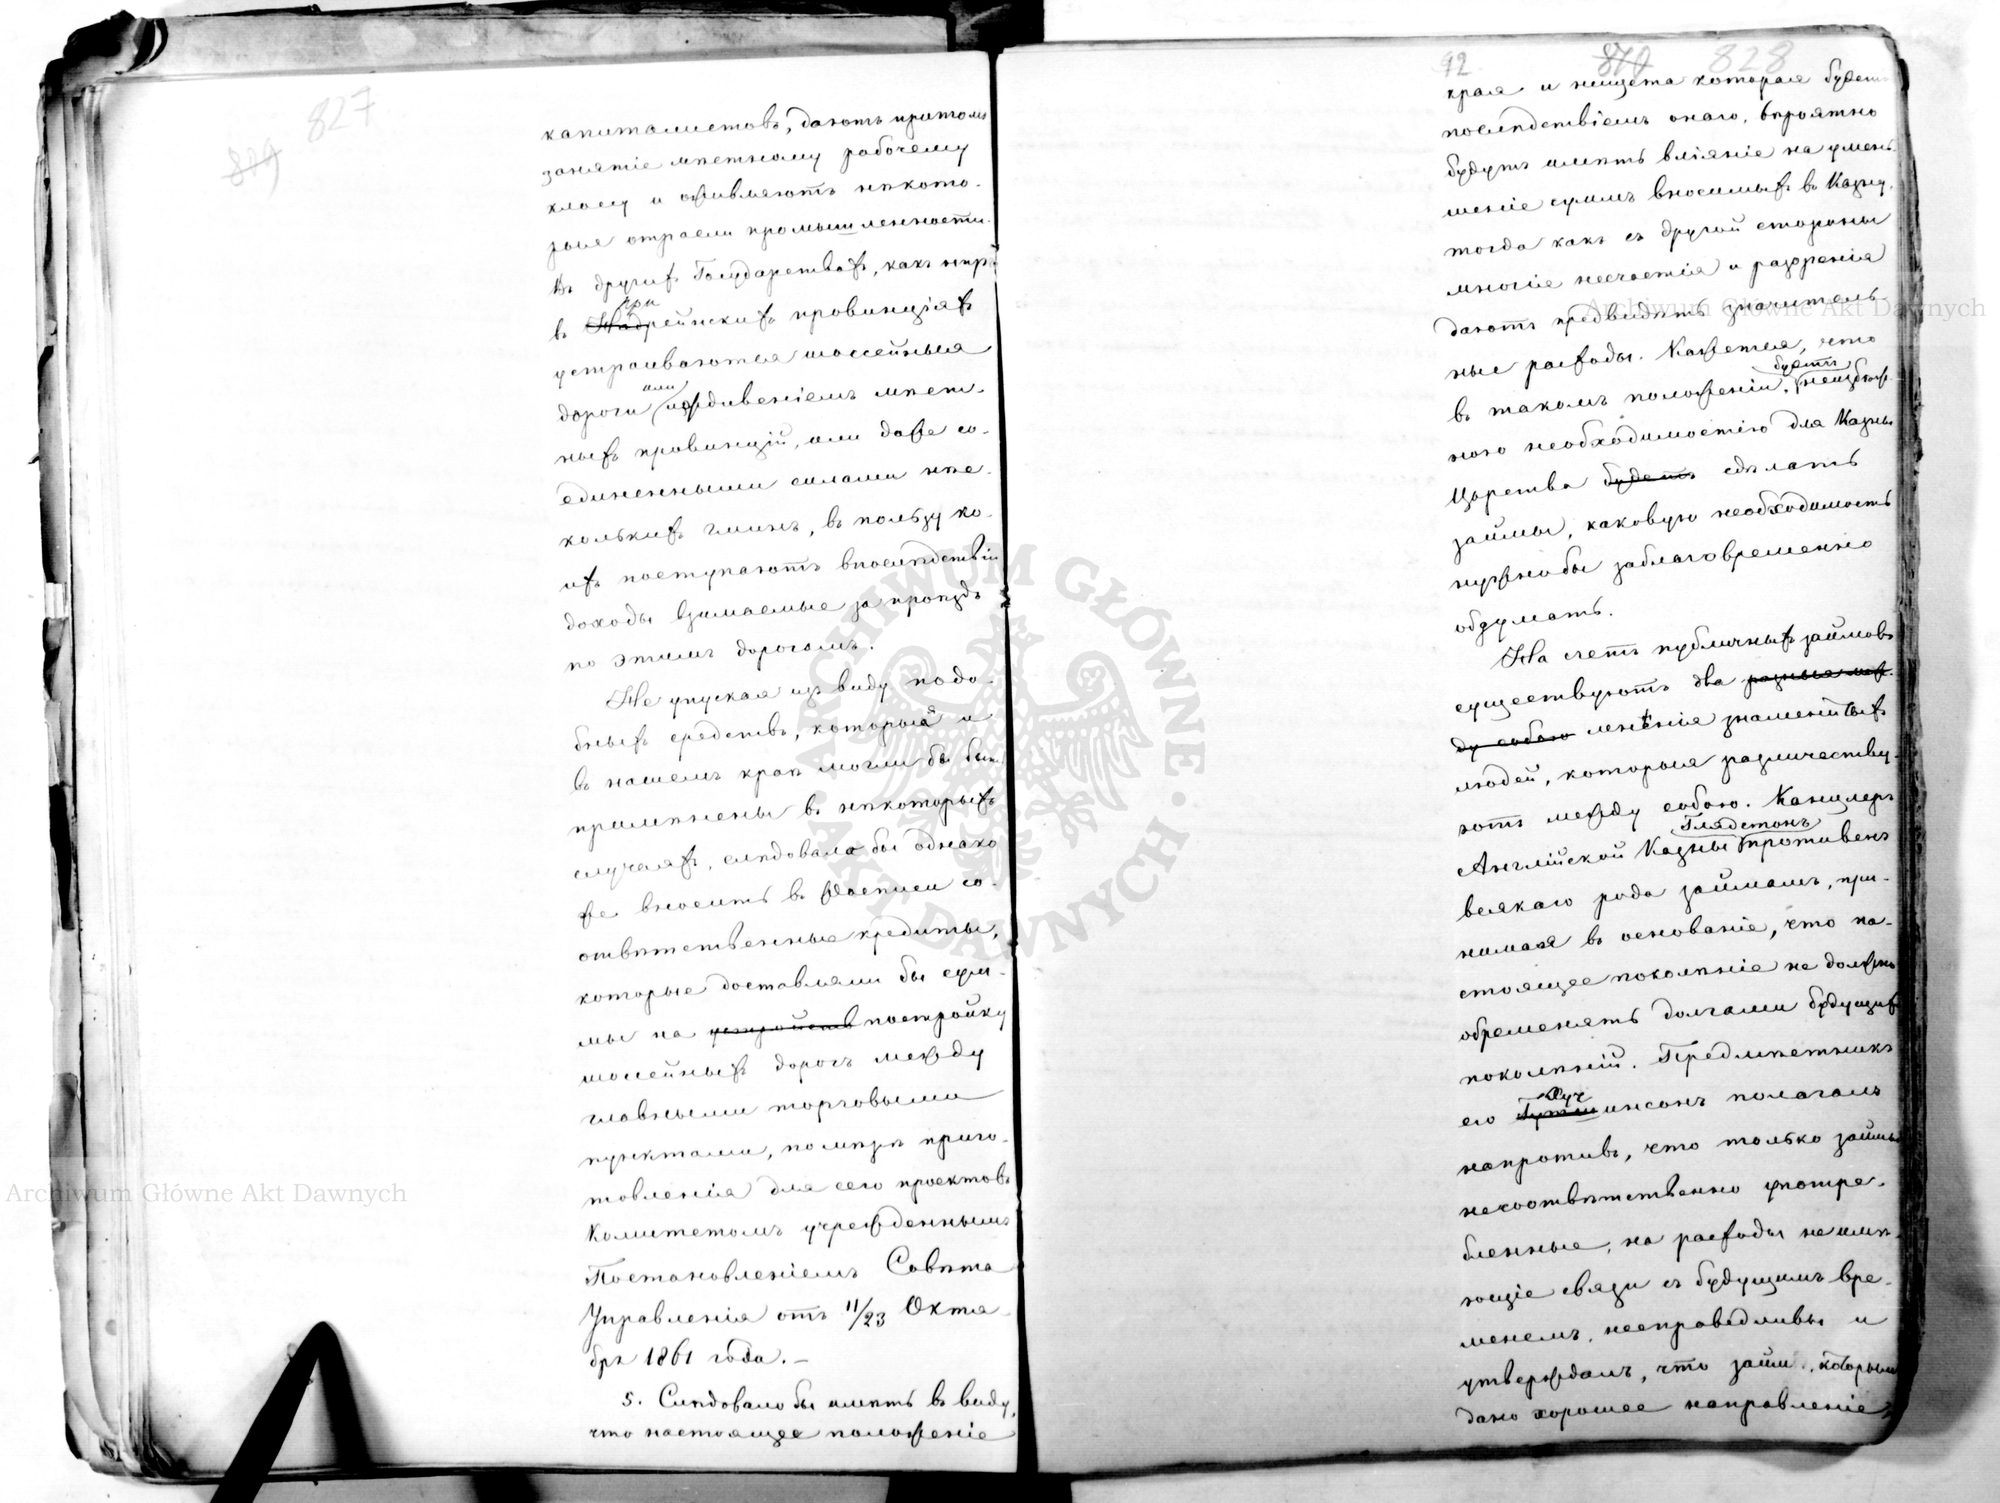 827
819
капиталистовъ, даютъ притомъ
занятіе мѣстному рабочему
классу и оживляютъ нѣкото-
рые отрасли промышленности.
Въ другихъ Государствахъ, какъ напр:
при
въ Надрейнскихъ провинціяхъ
устраиваются шоссейныя
или
дороги иждивеніемъ мѣст-
ныхъ провинцій, или даже со-
единенными силами нѣс-
колькихъ гминъ, въ пользу ко-
ихъ поступаютъ впослѣдствіи
доходы взимаемые за проѣздъ
по этимъ дорогамъ.
Не упуская изъ виду подо-
бныхъ средствъ, которыя и
въ нашемъ краѣ могли бы быть
примѣнены въ нѣкоторыхъ
случаяхъ, слѣдовало бы однако
же вносить въ росписи со-
отвѣтственные кредиты,
которые доставляли бы сум-
мы на устройств постройку
шоссейныхъ дорогъ между
главными торговыми
пунктами, по мѣрѣ приго-
товленія для сего проектовъ
Комитетомъ учрежденнымъ
Постановленіемъ Совѣта
Управленія отъ 11/23 Октя-
бря 1861 года. –
5. Слѣдовало бы имѣть въ виду,
что настоящее положеніе
92 810 828
края и нищета которая будетъ
послѣдствіемъ онаго, вѣроятно
будутъ имѣть вліяніе на умень-
шеніе суммъ вносимыхъ въ Казну,
тогда какъ съ другой стороны
многіе несчастія и разоренія
даютъ предвидѣть значитель-
ные расходы. Кажется, что
будетъ
въ такомъ положеніи, неизбѣж-
ною необходимостію для Казны
Царства будетъ сдѣлать
займы, каковую необходимость
нужно бы заблаговременно
обдумать.
На счетъ публичныхъ займовъ
существуютъ два разныя меж-
ду собою мнѣнія знаменитыхъ
людей, которыя различеству-
ютъ между собою. Канцлеръ
Глядстонъ
Англійской Казны противенъ
всякаго рода займамъ, при-
нимая въ основаніе, что на-
стоящее поколѣніе не должно
обременять долгами будущихъ
поколѣній. Предмѣстникъ
его инсонъ полагалъ
напротивъ, что только займы
несоотвѣтственно употре-
бленные, на расходы не имѣ-
ющіе связи съ будущимъ вре-
менемъ, несправедливы и
утверждалъ, что займ, которымъ
дано хорошее направленіе,
Archiwum Główne Akt Dawnych
Archiwum Główne Akt Dawnych
ARCHIWUM GŁÓWNE AKT DAWNYCH